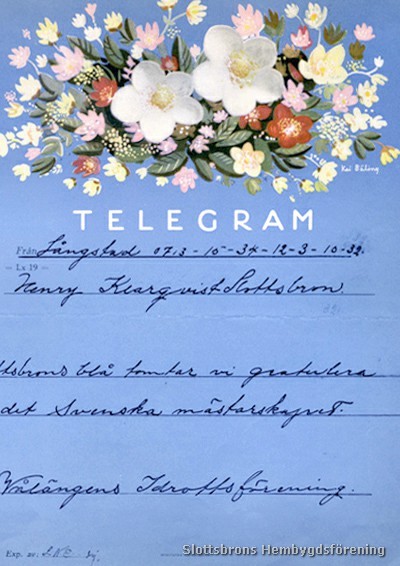 Kai Båling
TELEGRAM
Från Långstad 0713 - 10 - 34 - 12 - 3 - 10 - 32.
Lx 19
Henry Klarqvist Slottsbron.
ttsbrons blå tomtar vi gratulera
det Svenska mästarskapet.
Wålängens Idrottsförening.
Exp. av:
Slottsbrons Hembygdsförening